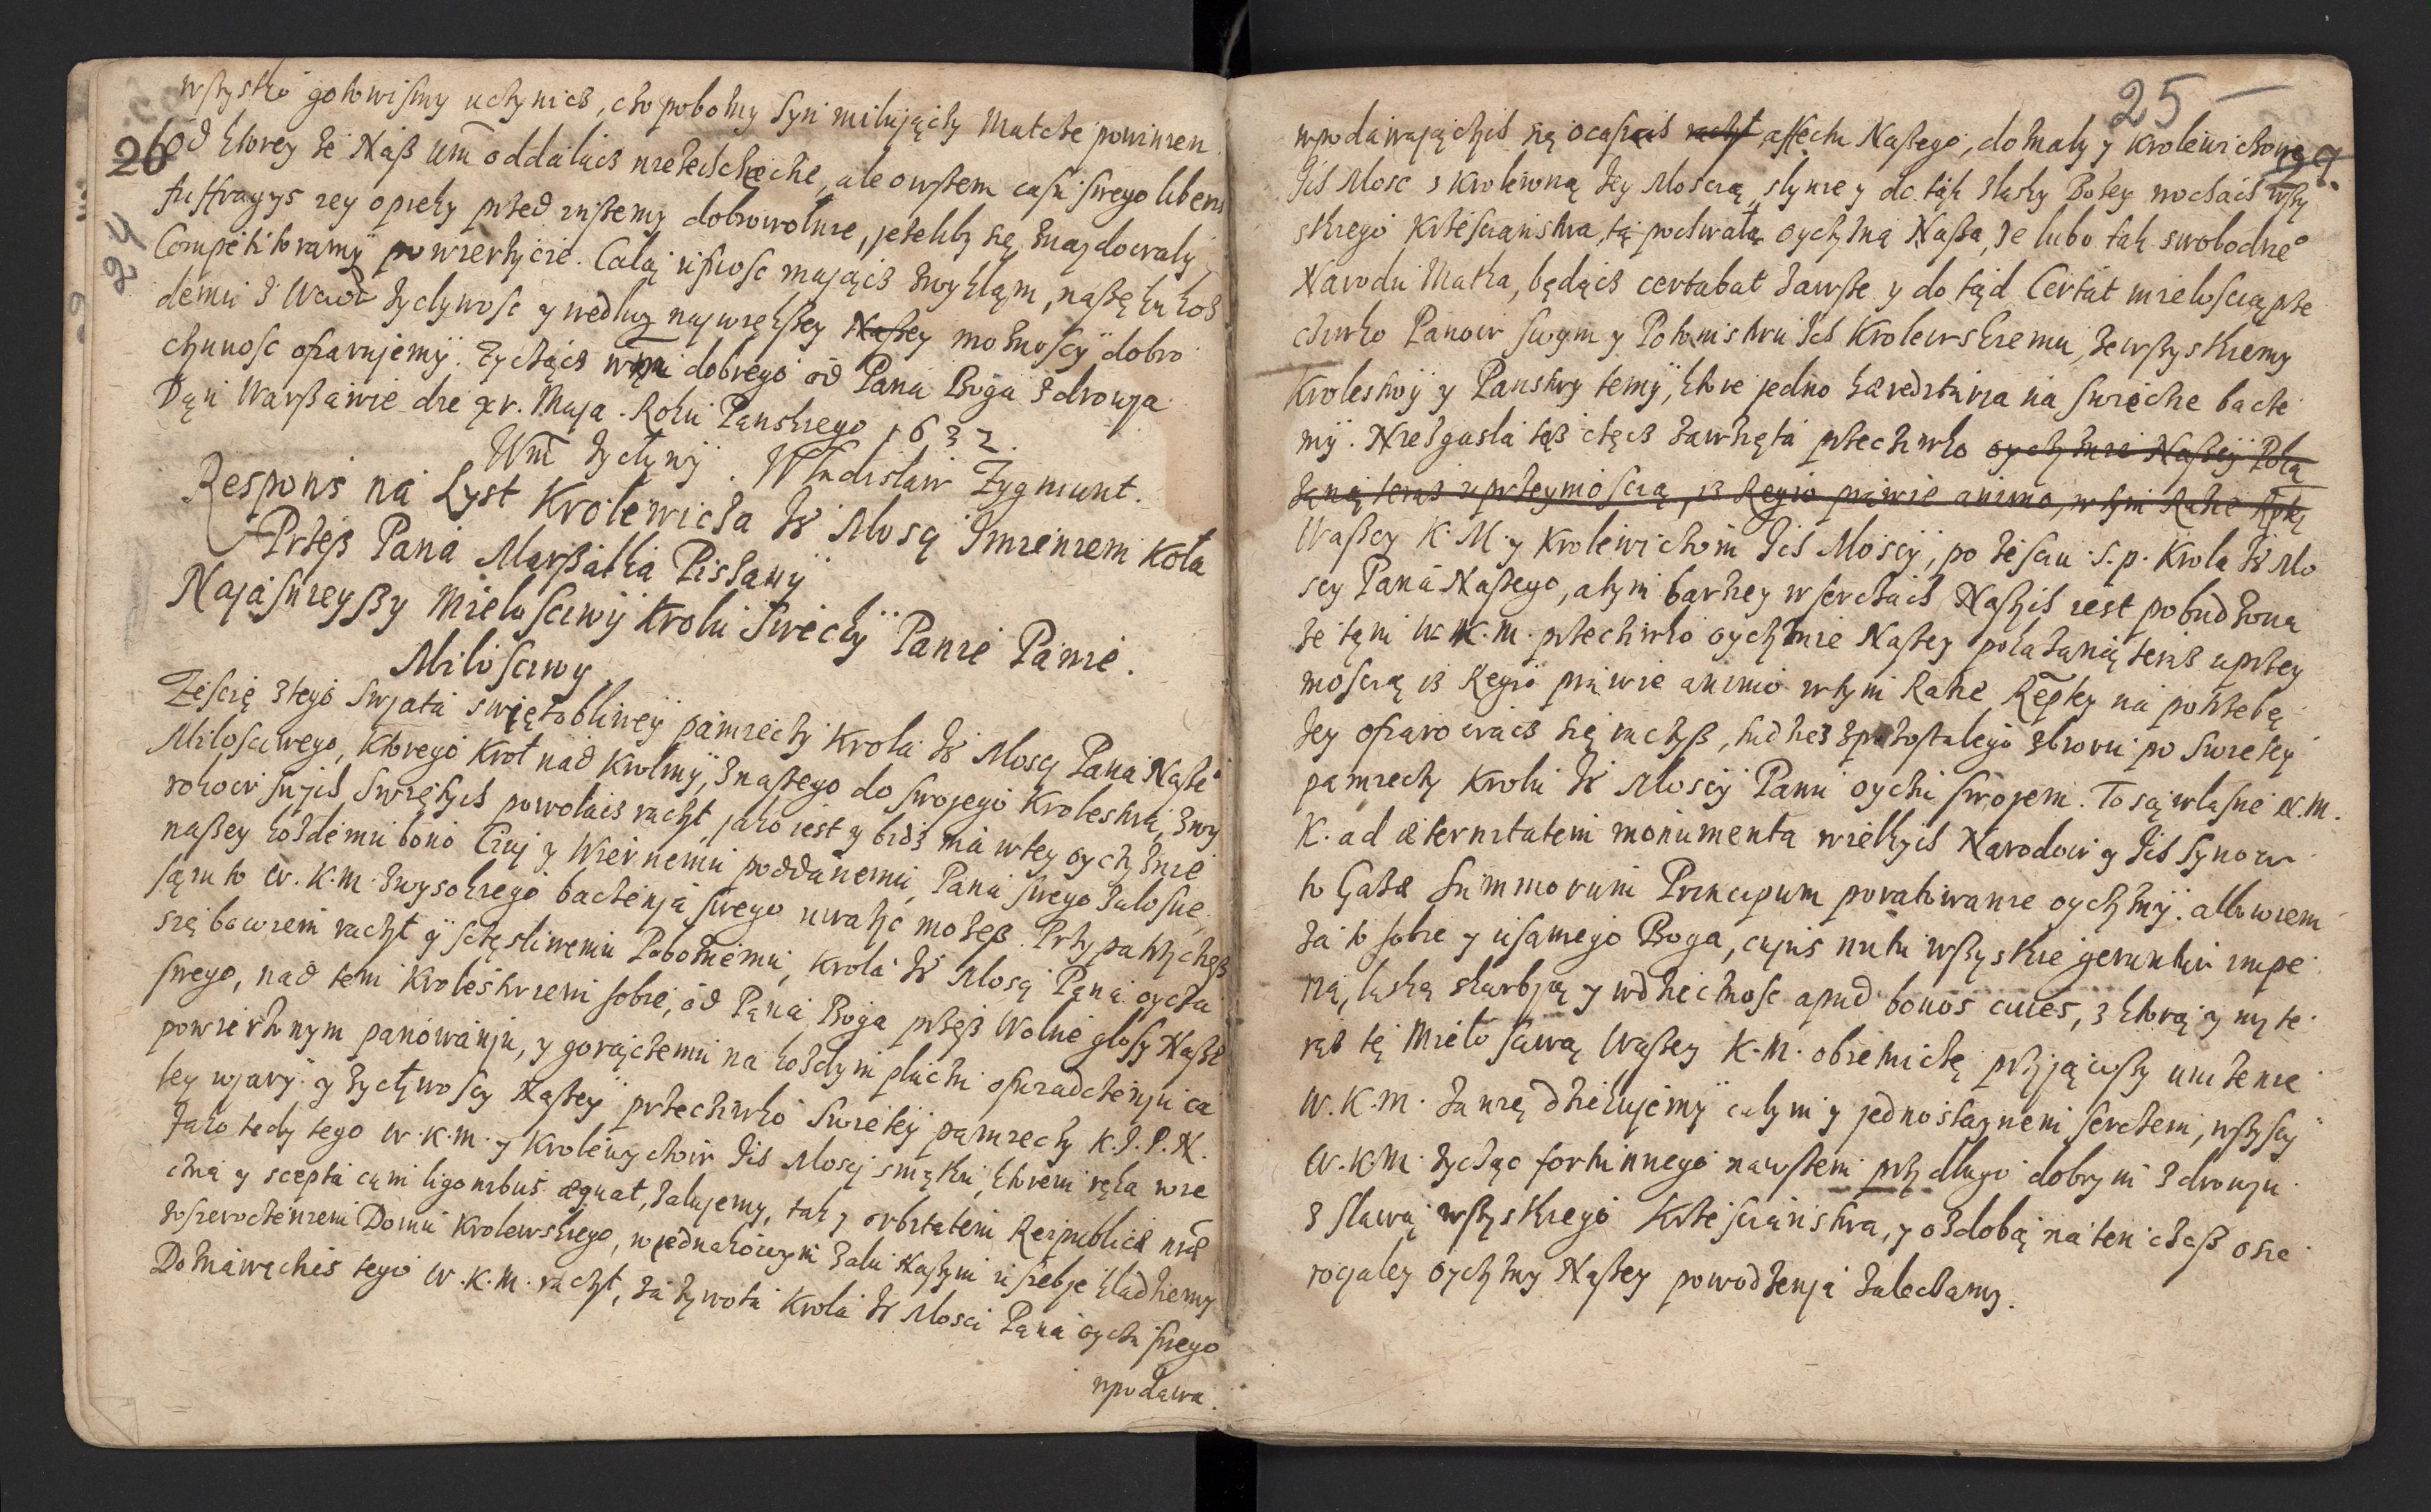 wszystko gotowismy uchynicz, cho pobożny Syn miłujączy Matcze powinien.
26
24
od ktorey że Nasz Um̃ oddalacz niezechcecie, ale owszem casu swego libens
suffragys iey opieky przed inszemy dobrowolnie, jeżeliby się znaydowaly
Competitoramy powierzycie. Całą ufnosc mającz zwykląm, naszę ku koż
demu z Waw̃ życzlywosc y według naywiększey Naszey możnoscÿ dobro
chynnosc ofiarujemÿ. Życząc wm̃ dobrego od Pana Boga zdrowja
Dań Warszawie die xv. Maja. Roku Panskiego 1632.
Wm̃ życzlywÿ. Wladislaw Zygmunt.
Respons na Lyst Krolewicza Je° Moscj Imieniem Koła
Przesz Pana Marszałka Pissany
Najasnieyszy Mielosciwÿ Krolu Swiecky Panie Panie.
Milosciwy.
Zescię z tego swjata swiętobliwey pamiecty Krola Je° Moscj Pana Nasze°
Milosciwego, ktorego Krol nad Krolmÿ, z naszego do swojego Krolestwa, zwy
rokow swych swiętych powołacz raczył, jako iest y bydz ma w tey oychyznie
naszey kożdemu bono Civj y Wiernemu poddanemu, Pana swego żalosne,
sąm to W. K. M. z wysokiego baczenja swego uważyc możesz. Przypatrzychsz
się bowiem raczył ÿ sczęsliwemu Pobożnemu, Krola Je° Moscj Pana oycza
swego, nad tem Krolestwem sobie, od Pana Boga przesz Wolne glosy Nasze
powierzonym panowanju, y gorączemu na kożdym placzu oswiadczenju ca
łey wjary y życzlywoscy Naszey przeciwko swietey pamiecty K. J. P. N.
Jako tedy tego W. K. M. y Krolewychow Ich Moscj smątku, ktorem ręka wie
czna y sceptra cum ligonibus æquat, żalujemy, tak y orbitatem Reipublicæ nr̃æ
zosieroczeniem Domu Krolewskiego, w jednakowym żalu Naszym u siebje kladziemy
Doznawaches tego W. K. M. raczył, za żywota Krola Je° Mosci Pana oycza swego
wpodawa.
25
wpodawającyis się ocasiach raczył affectu Naszego, doznały y Krolewichowie
Ich Mosc s Krolewną Jey Moscią, słynie y do tych sluchy Bożey wochach wszy
stkiego Krzescianstwa, tą pochwałą oychyzna Nasza, że lubo tak swobodne°
Narodu Matka, będącz certabat zawsze y do tąd Certat mielosciąprze
ciwko Panow swym y Potomstwu Ich Krolewskiemu, ze wszystkiemy
Krolestwÿ y Panstwy temÿ, ktore jedno hæreditaria na swieche bacze
mÿ. Niezgasla też chęcz zawzięta przeciwko oychyznie Naszÿ Poka
zaną teraz uprzeymoscią, iż Regio prawie animo, w tym Razie Rptey
Waszey K. M. y Krolewichom Ich Moscÿ, po zesciu s. p. Krola Je° Mo
scy Pana Naszego, a tym barziey w serczach Naszych iest pobudzona
że tąm W. K. M. przeciwko oychyznie Naszey pokazaną teraz uprzey
moscią iż Regio prawie animo w tym Razie Rẽptey na potrzebę
Jey ofiarowacz się raczysz, ludzież z pozostalego zbioru po swietey
pamiecty Krolu Je° Moscÿ Panu oyczu swojem. To są własne W. M.
K. ad æternitatem monumenta wielkych Narodow y Ich Synow
to Gazæ Summorum Principum poratowanie oychyznÿ. albowiem
za to sobie y u samego Boga, cujus nutu wszystkie geruntur impe
ria, laską skarbją y wdzięcznosc apud bonos cives, z ktorą y my te
raz tę Mielosciwą Waszey K. M. obietniczę przyjąwszy unizenie
W. K. M. za nię dziekujemÿ całym y jednostaynem serczem, wszyscÿ
W. K. M. życząc fortunnego na wszem przy długo dobrym zdrowju
z slawą wszystkiego Krzescianstwa, y ozdobą na ten czas osie
rociałey oychyzny Naszey powodzenja zaleczamy.